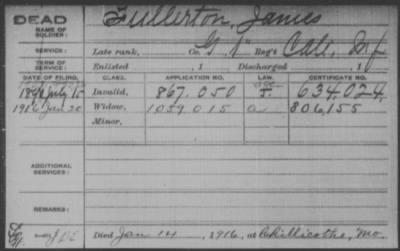 DEAD
NAME OF SOLDIER: Fullerton, James
SERVICE: Late rank, Co. G, 1" Reg't Cali, Inf
TERM OF SERVICE: Enlisted , 1 Discharged , 1
DATE OF FILING. CLASS. APPLICATION NO. LAW. CERTIFICATE NO.
July 15 Invalid, 867.050 634,024,
1916 Jan 20 Widow, 1039015 806,155
Minor,
ADDITIONAL SERVICES:
REMARKS:
Died Jan 14, 1916, at Chillicothe, Mo.